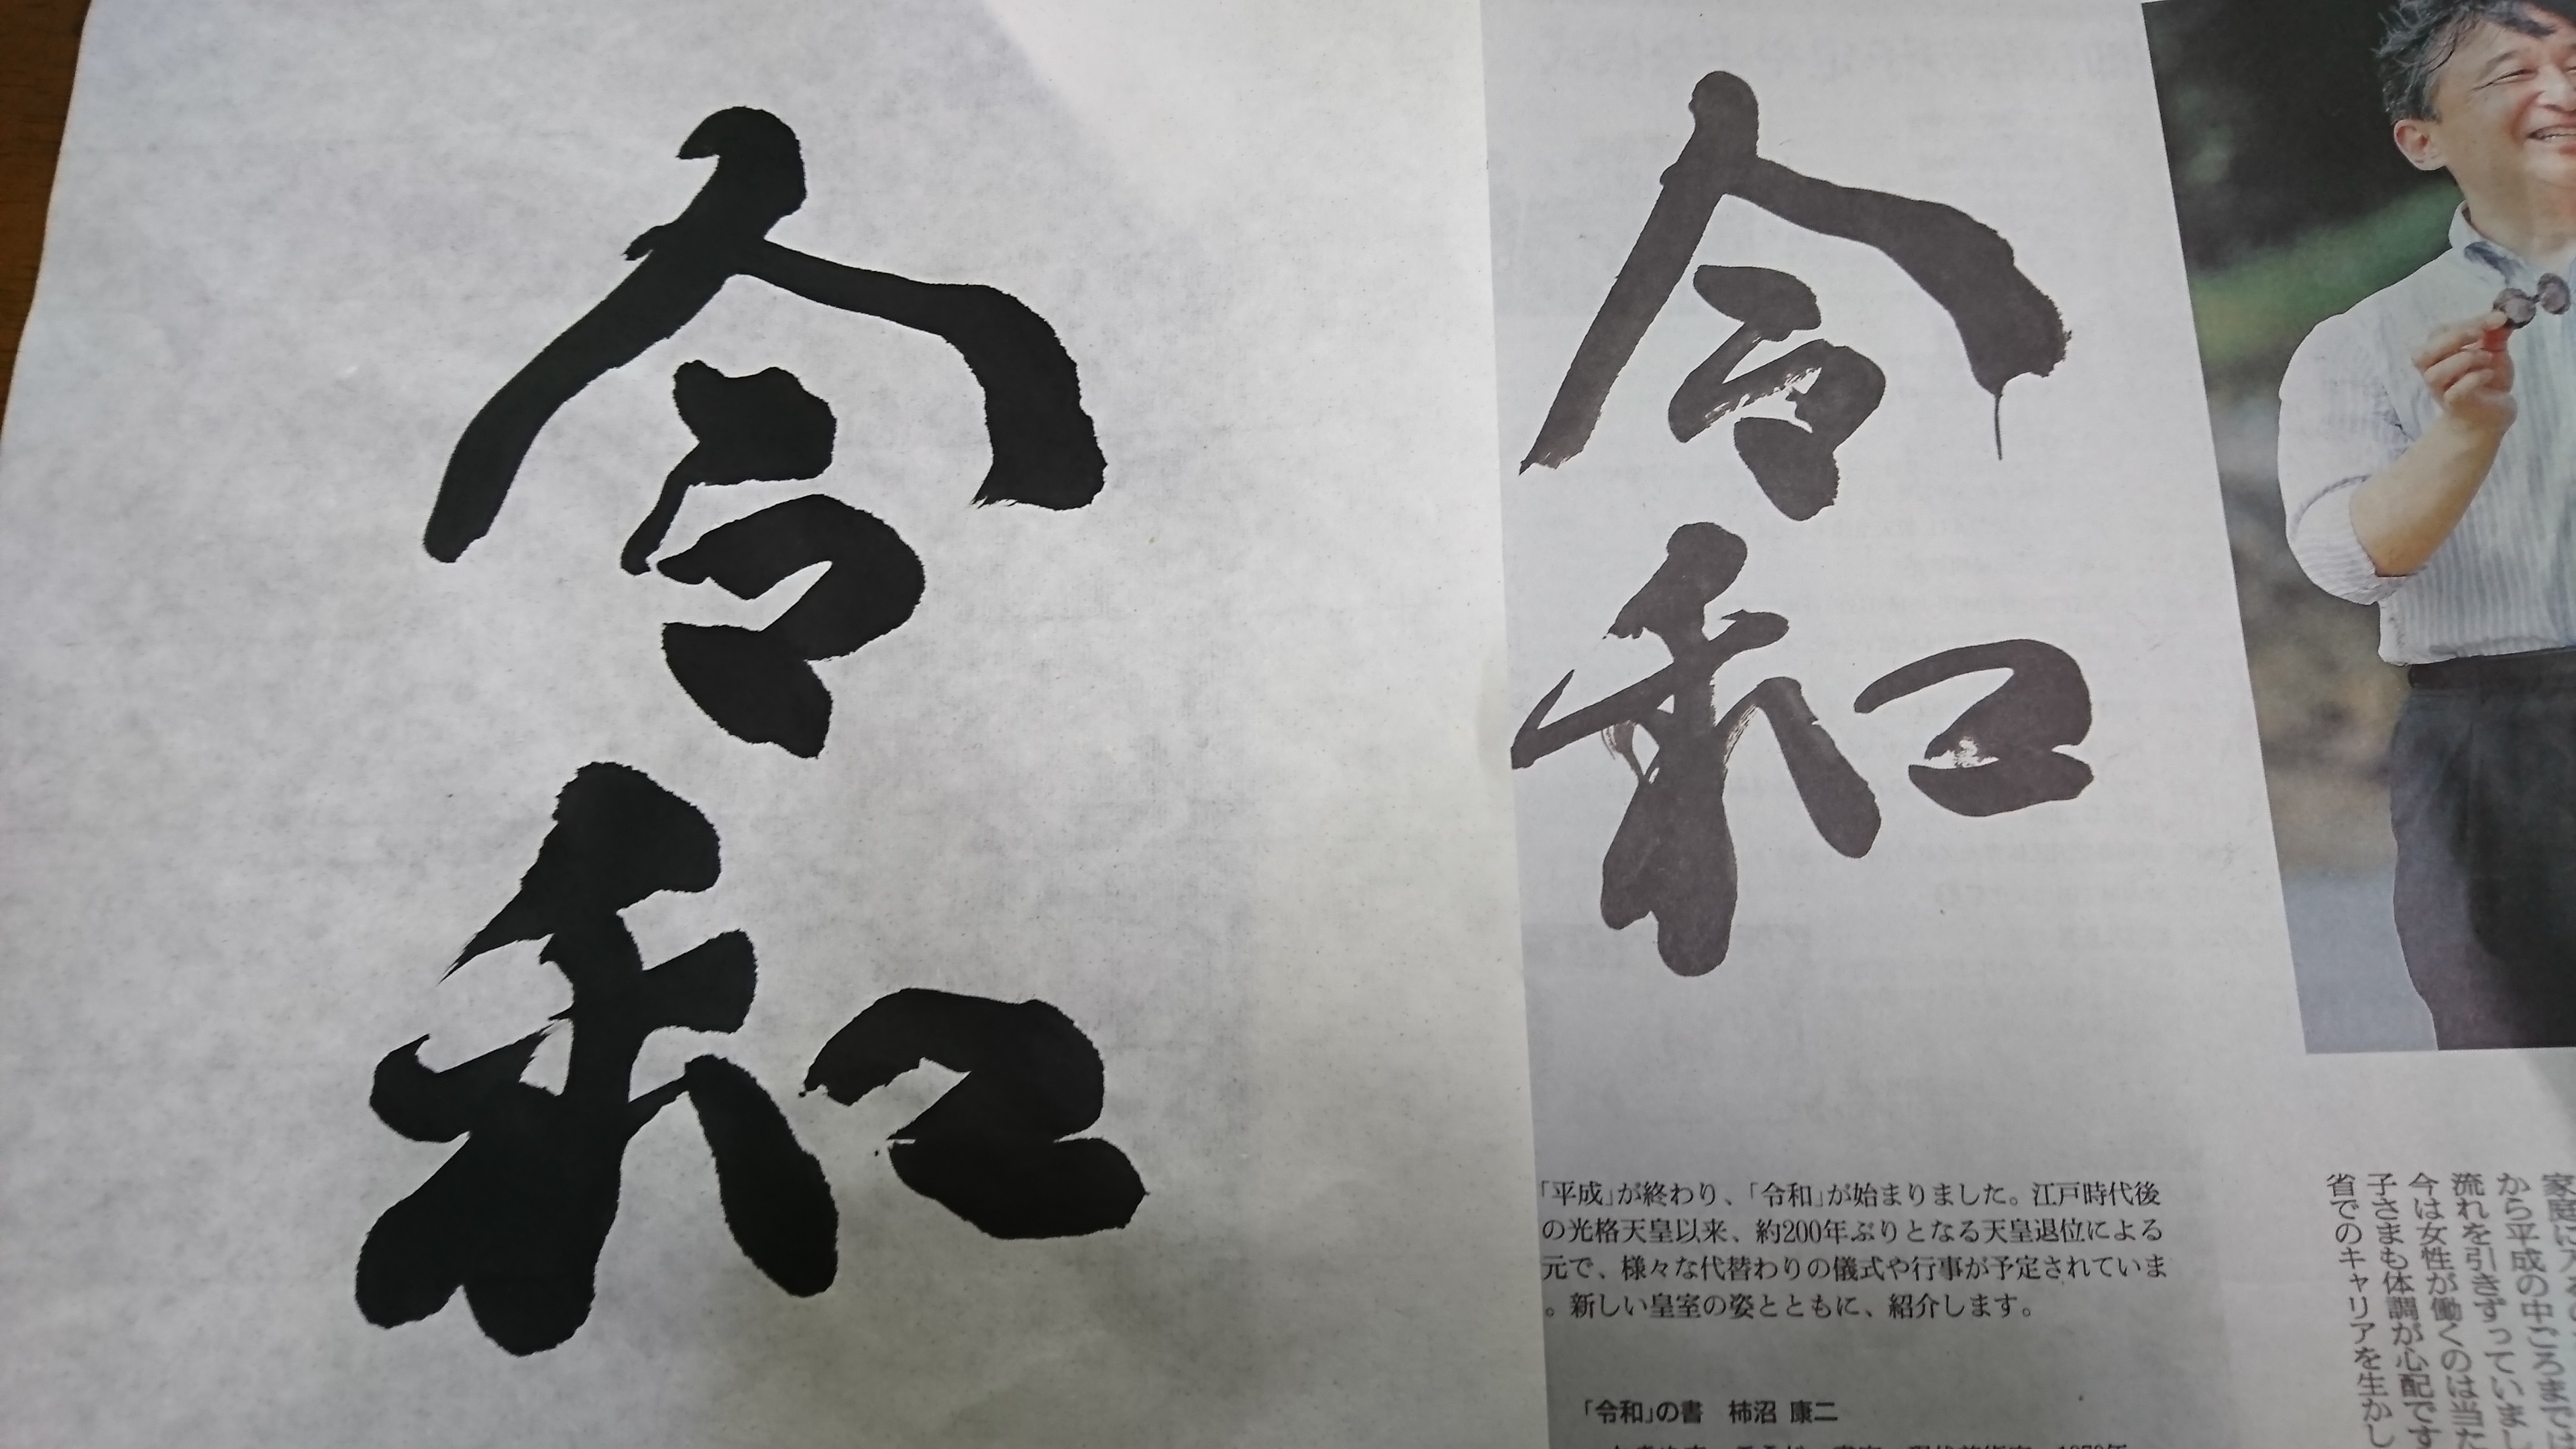 令和
令和
「平成」が終わり、「令和」が始まりました。江戸時代後
の光格天皇以来、約200年ぶりとなる天皇退位による
元で、様々な代替わりの儀式や行事が予定されていま
。新しい皇室の姿とともに、紹介します。
「令和」の書 柿沼 康二
から平成の中ごろまでは
流れを引きずっていまし
今は女性が働くのは当た
子さまも体調が心配です
省でのキャリアを生かし